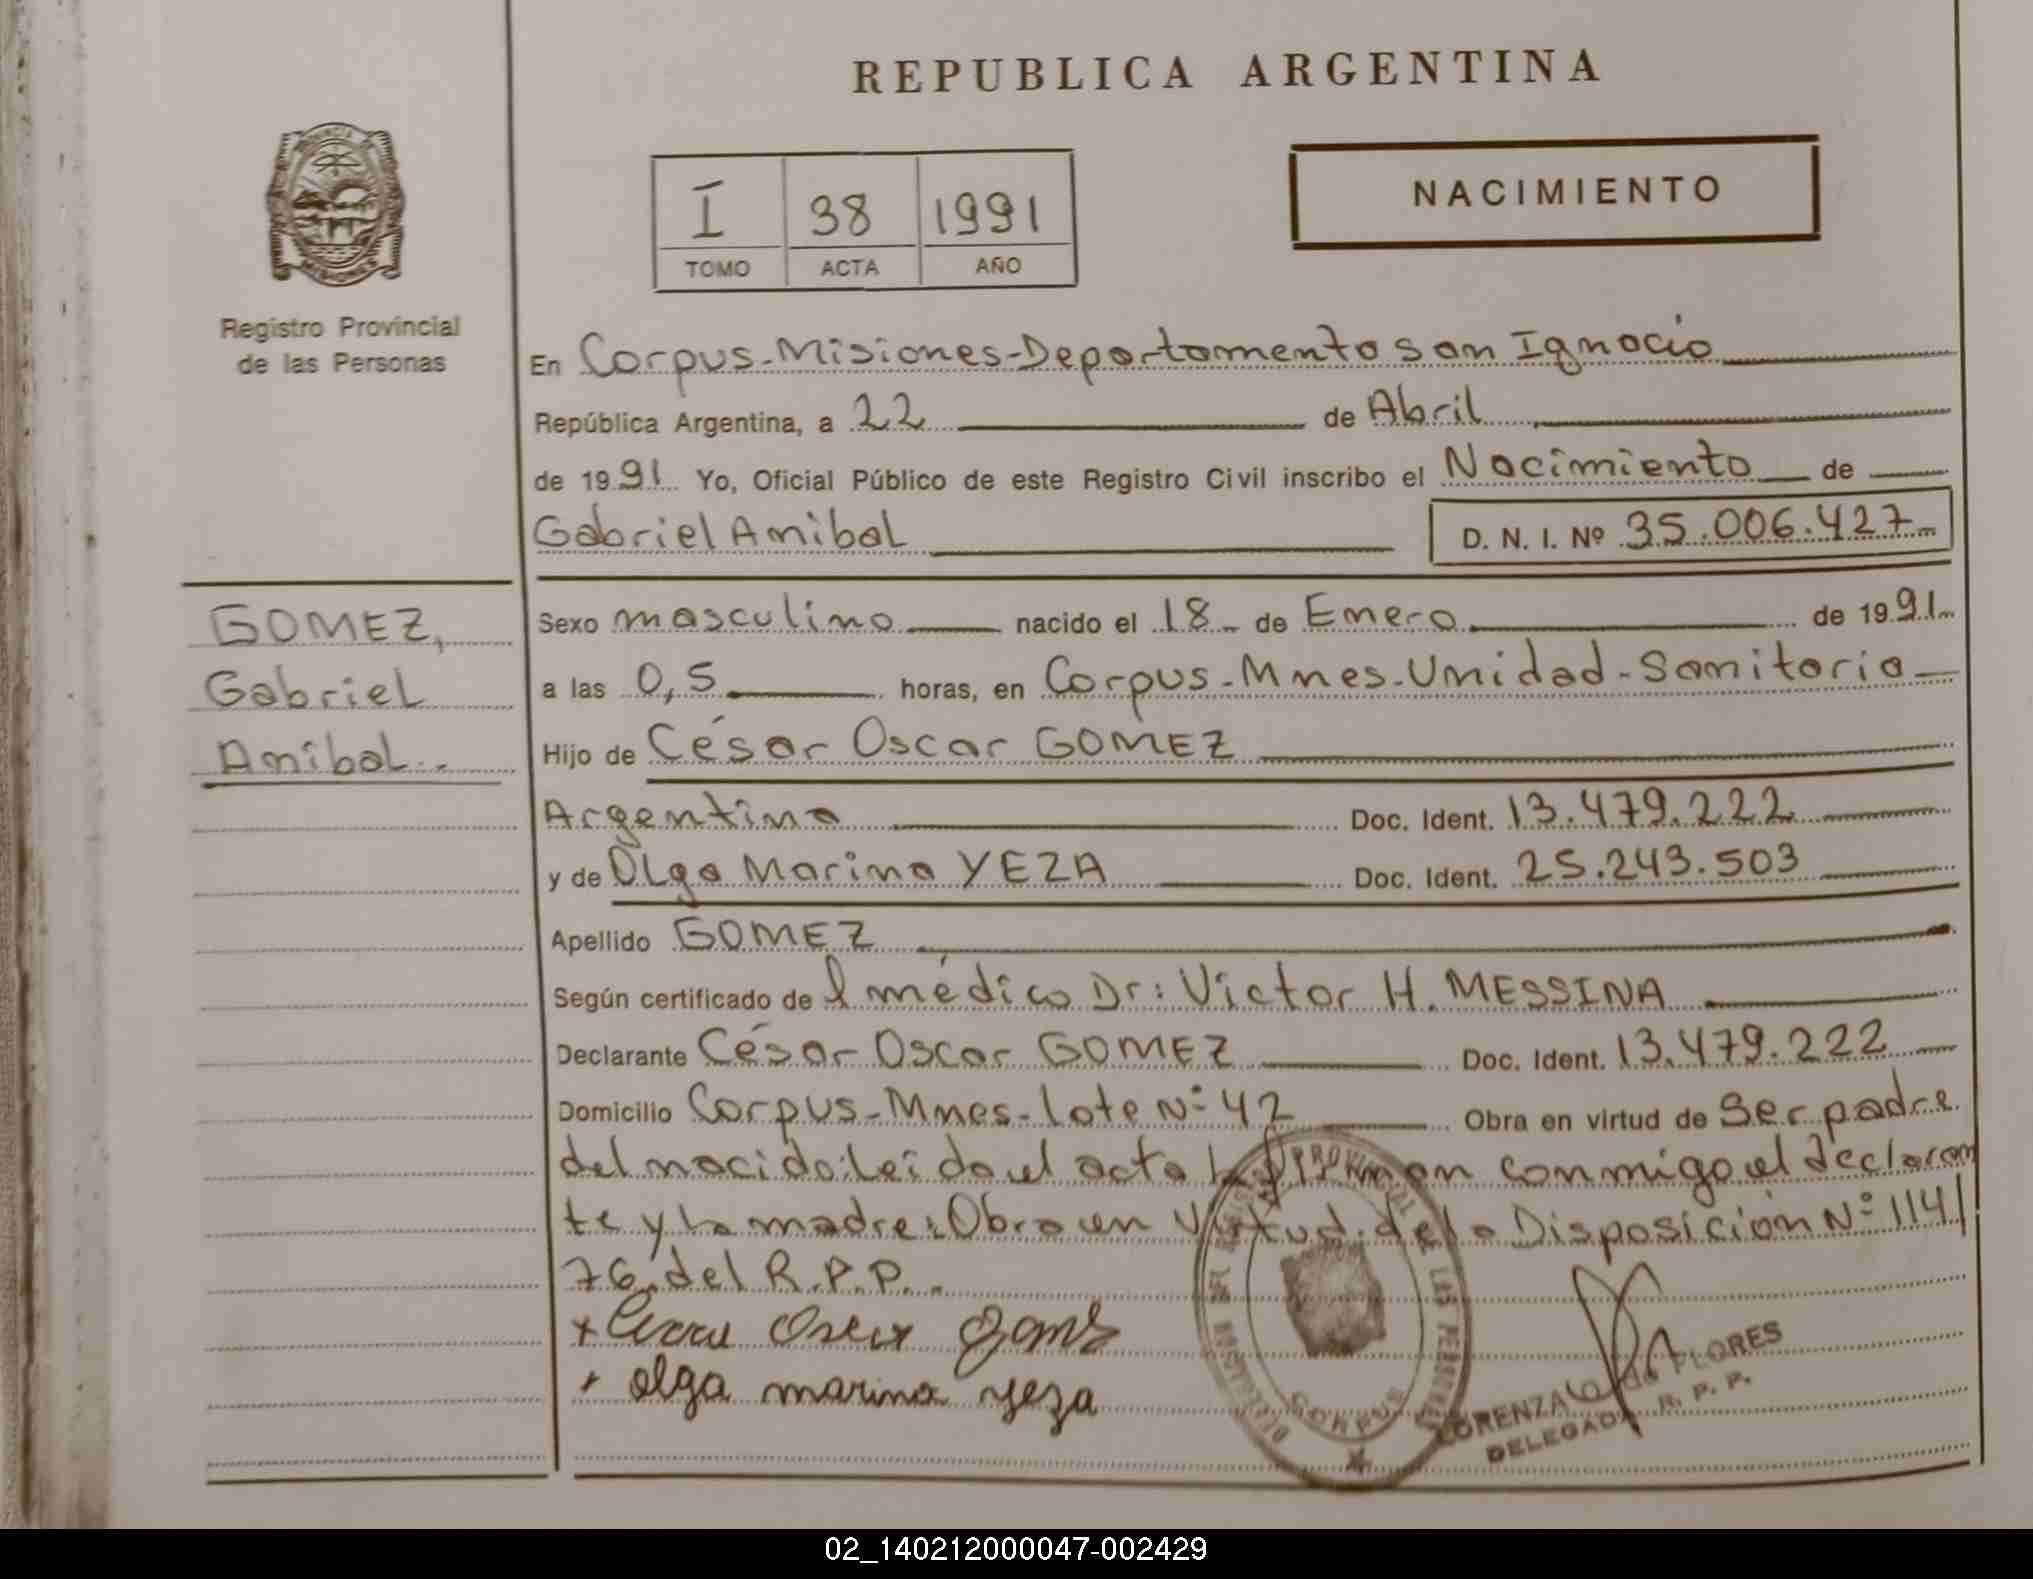 REPUBLICA ARGENTINA
PROVINCIA
MISIONES
Registro Provincial
de las Personas
I 38 1991
TOMO ACTA AÑO
NACIMIENTO
En Corpus-Misiones-Departamento San Ignacio
República Argentina, a 22 de Abril
de 1991 Yo, Oficial Público de este Registro Civil inscribo el Nacimiento de
Gabriel Anibal D. N. I. Nº 35.006.427
GOMEZ,
Gabriel
Anibal
Sexo masculino nacido el 18 de Enero de 1991
a las 0,5 horas, en Corpus-Mnes-Unidad-Sanitaria
Hijo de César Oscar GOMEZ
Argentino Doc. Ident. 13.479.222
y de Olga Marina YEZA Doc. Ident. 25.243.503
Apellido GOMEZ
Según certificado de l médico Dr: Victor H. MESSINA
Declarante César Oscar GOMEZ Doc. Ident. 13.479.222
Domicilio Corpus-Mnes-lote Nº 42 Obra en virtud de Ser padre
del nacido: leido el acta la firman conmigo el declaran
te y la madre: Obra en virtud de la Disposición Nº 114/
76 del R.P.P.
x Oscar Gomez
x olga marina yeza
PROVINCIAL DE LAS PERSONAS
CORPUS
LORENZA de FLORES
DELEGADA R. P. P.
02_140212000047-002429